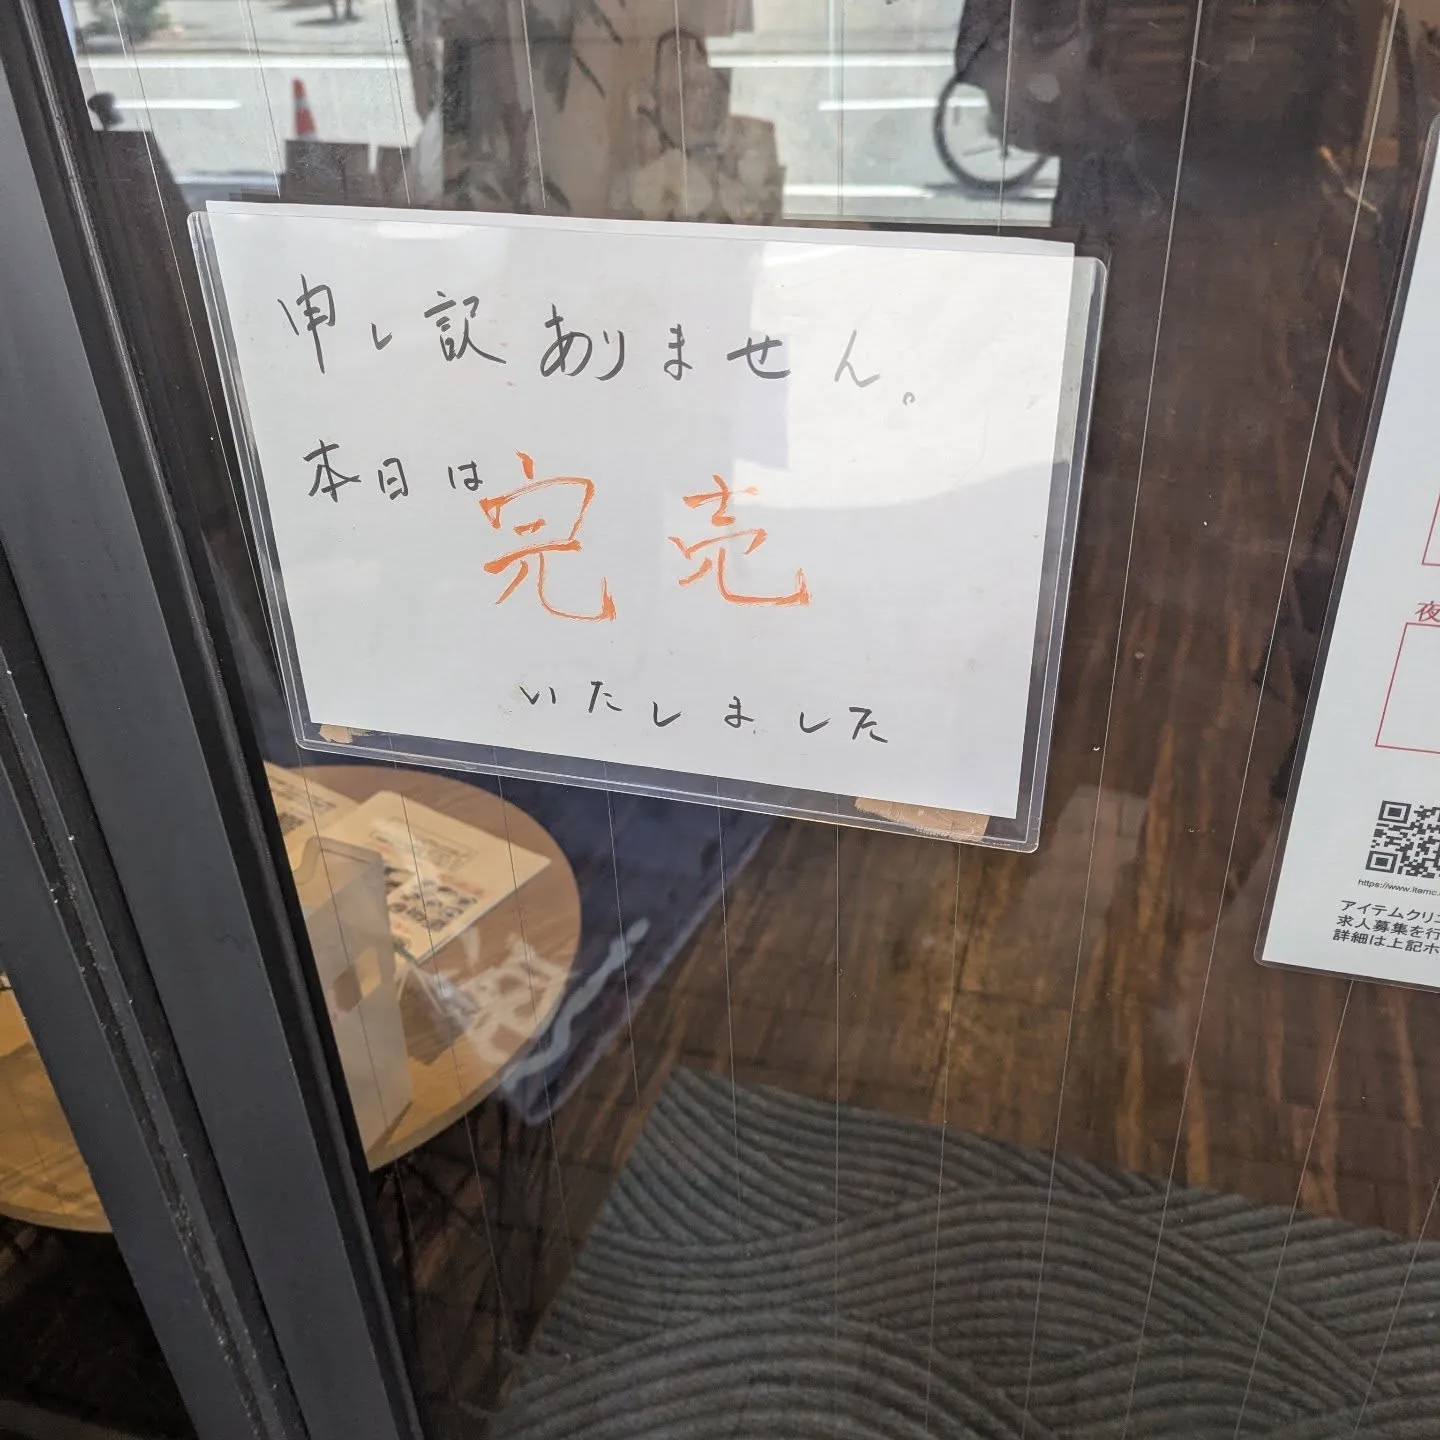 申し訳ありません。
本日は完売
いたしました
夜
https://www.itamc.
アイテムクリニ
求人募集を行
詳細は上記ホ